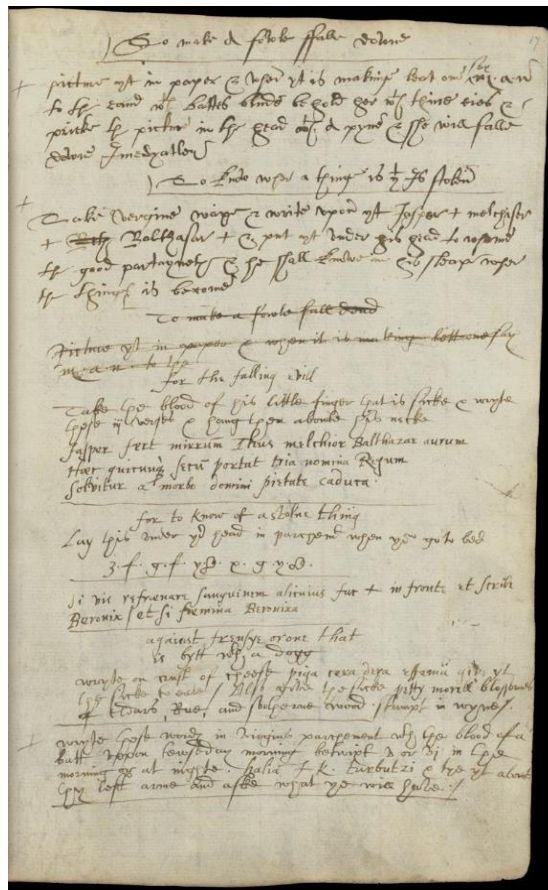 17
) To make A fowle ffalle downe
picture yt in paper & when yt is making lett one say
to the eand with battes bloud behold her with thine eies &
pricke the picture in the head with A pynne & she will falle
downe Imedyatley
) To know wher a thing is yt Is stolen
Take Vergine wax & write vpon yt Jasper + melchiser
+ Balthasar + & put yt vnder his head to whome
the good partayneth & he shall knowe in his sleap wher
the thinge is become
To make a fowle fall dead
Picture yt in paper & when it is making lett one say
to the
for the falling evill
Take the blood of his little finger that is sicke & wryte
these iij verses & hang them aboute his necke
Jasper fert mirrum thus melchior Balthazar aurum
Haec quicunque secum portat tria nomina Regum
Solvitur a morbo domini pietate caduca.
for to know of a stolne thing
Lay this vnder yr head in parchement when ye go to bed
3. f. g. f. x. g. y.
Si vis refrenare sanguinem alicuius fac + in fronte et scribe
Beronix / et si fœmina Beronixa
against frensye or one that
is bytt with a dogg
wryte on crust of cheese
the sicke to eate / Also
of Rue, and sutherne wood stampt in wyne /.
wryte these wordes in virgins parchement with the blood of a
batt vppon tewseday morning betwixt in the
morning or at nighte. & tye yt about
thy left arme and aske what ye will have ./